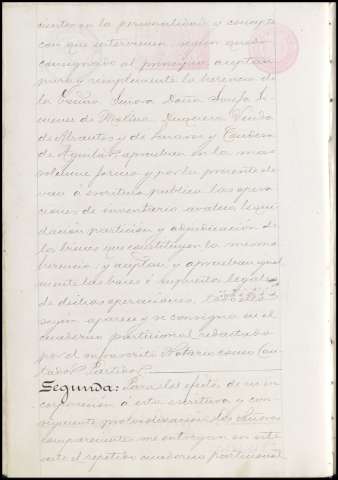 cientes en la personalidad y concepto
con que intervienen, según queda
consignado al principio, aceptan
pura y simplemente la herencia de
la Excma. Señora Doña Josefa
de Molina, Marquesa Viuda
de y de y Condesa
de Aguilar, aprueban en la mas
solemne forma y por la presente
escritura publica las opera-
ciones de inventario avaluo liqui-
dación partición y adjudicación de
los bienes que constituyen la misma
herencia; y aceptan y aprueban igual
mente las bases ó supuestos legales
de dichas operaciones,
según aparece y se consigna en el
cuaderno particional redactado
por el infrascrito Notario como Con-
tador Partidor.
Segunda: Para los efectos de su in-
corporación á esta escritura y con-
siguiente protocolización los señores
comparecientes me entregan en este
acto el repetido cuaderno particional